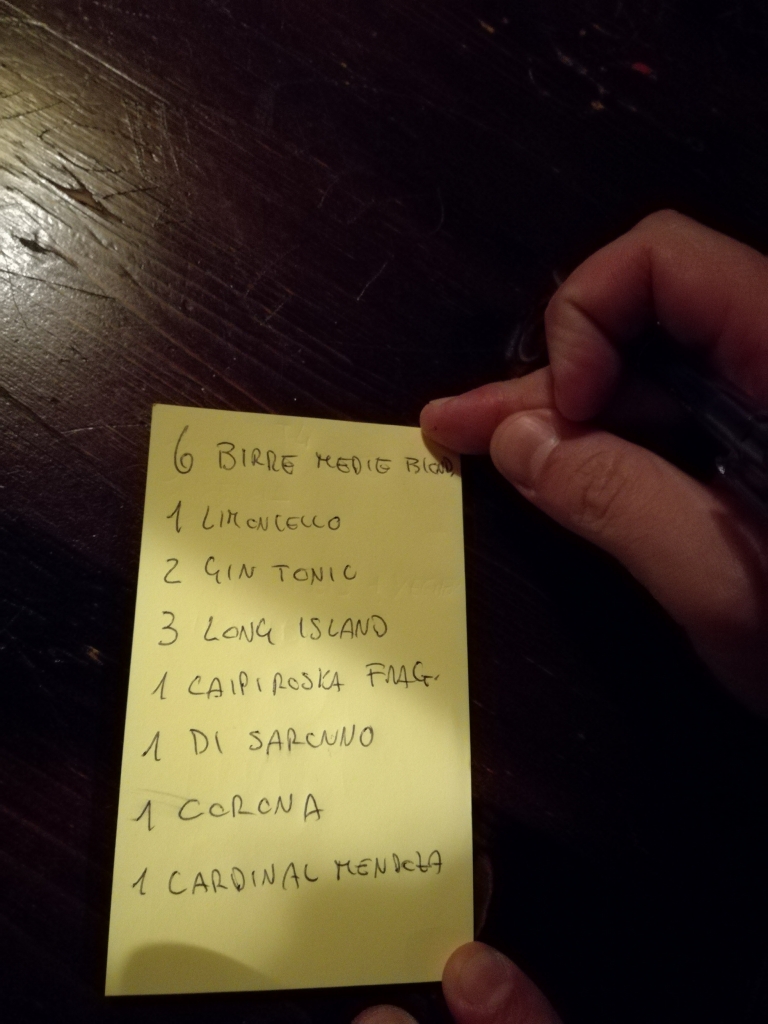 6 BIRRE MEDIE BIOND
1 LIMONCELLO
2 GIN TONIC
3 LONG ISLAND
1 CAIPIROSKA FRAG.
1 DI SARONNO
1 CORONA
1 CARDINAL MENDOZA